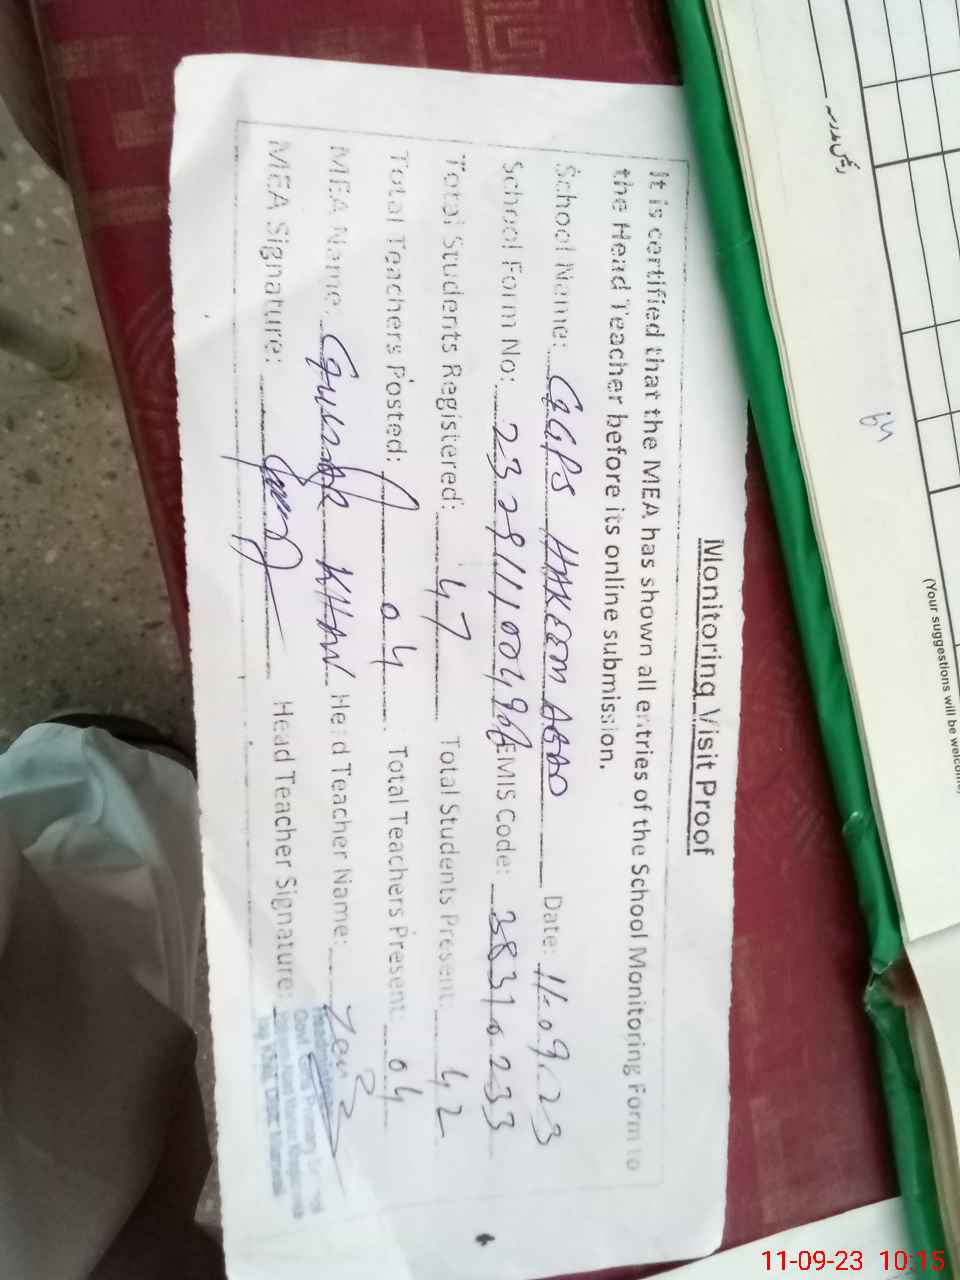 Monitoring Visit Proof
It is certified that the MEA has shown all entries of the School Monitoring Form to
the Head Teacher before its online submission.
School Name: GGPS HAKEEM ABAD Date: 11-09-23
School Form No: EMIS Code: 38310233
Total Students Registered: 47 Total Students Present: 42
Total Teachers Posted: 04 Total Teachers Present 04
MEA Name: KHAN Head Teacher Name:
MEA Signature: Head Teacher Signature:
Govt Girls Primary School
(Your suggestions will be welcome)
11-09-23 10:15